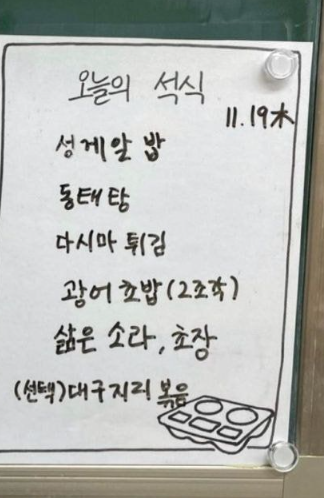 오늘의 석식
11.19木
성게알 밥
동태탕
다시마 튀김
광어 초밥(2조각)
삶은 소라, 초장
(선택)대구지리 볶음